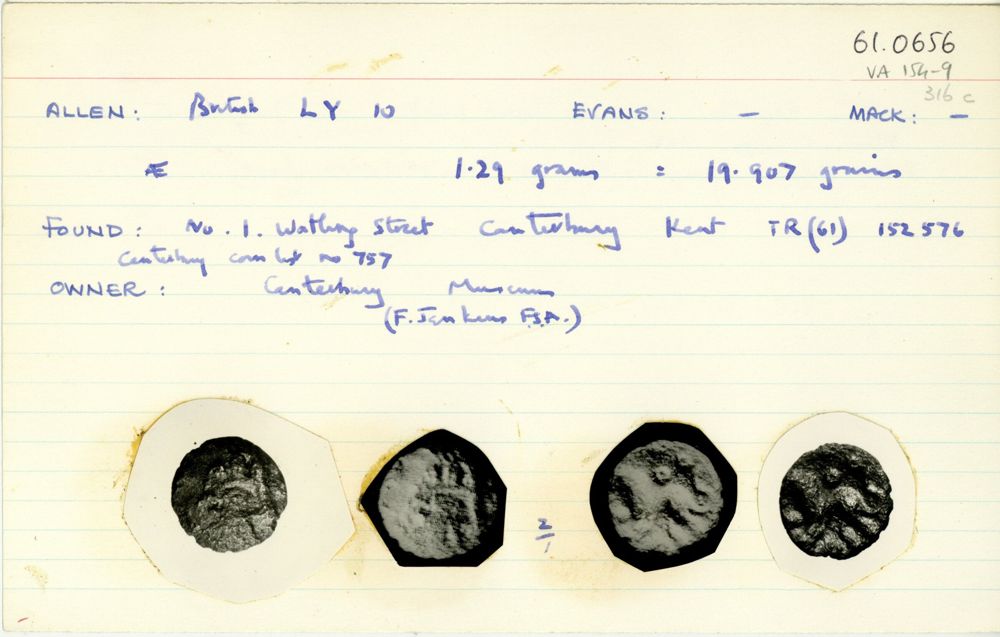 61.0656
VA 154-9
316 c
ALLEN: British LY 10 EVANS: — MACK: —
Æ 1.29 grams = 19.907 grains
FOUND: No. 1. Watling Street Canterbury Kent TR(61) 152576
Canterbury coin list no 757
OWNER: Canterbury Museum
(F. Jenkins F.S.A.)
2/1